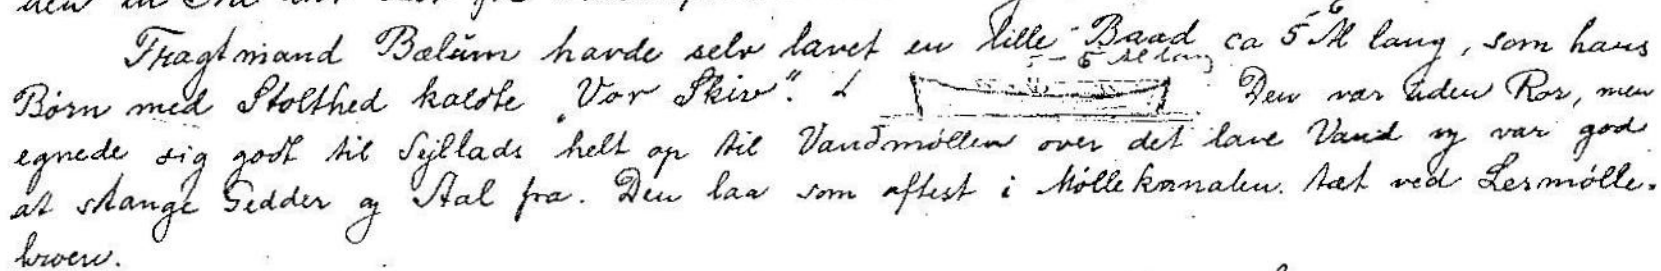 Fragtmand Bælum havde selv lavet en lille Baad ca 5-6 Al lang, som hans
5-6 Al lang
Børn med Stolthed kaldte "Vor Skiv". Den var uden Ror, men
egnede sig godt til Sejllads helt op til Vandmøllen over det lave Vand og var god
at stange Gedder og Aal fra. Den laa som oftest i Møllekanalen tæt ved Lermølle-
broen.